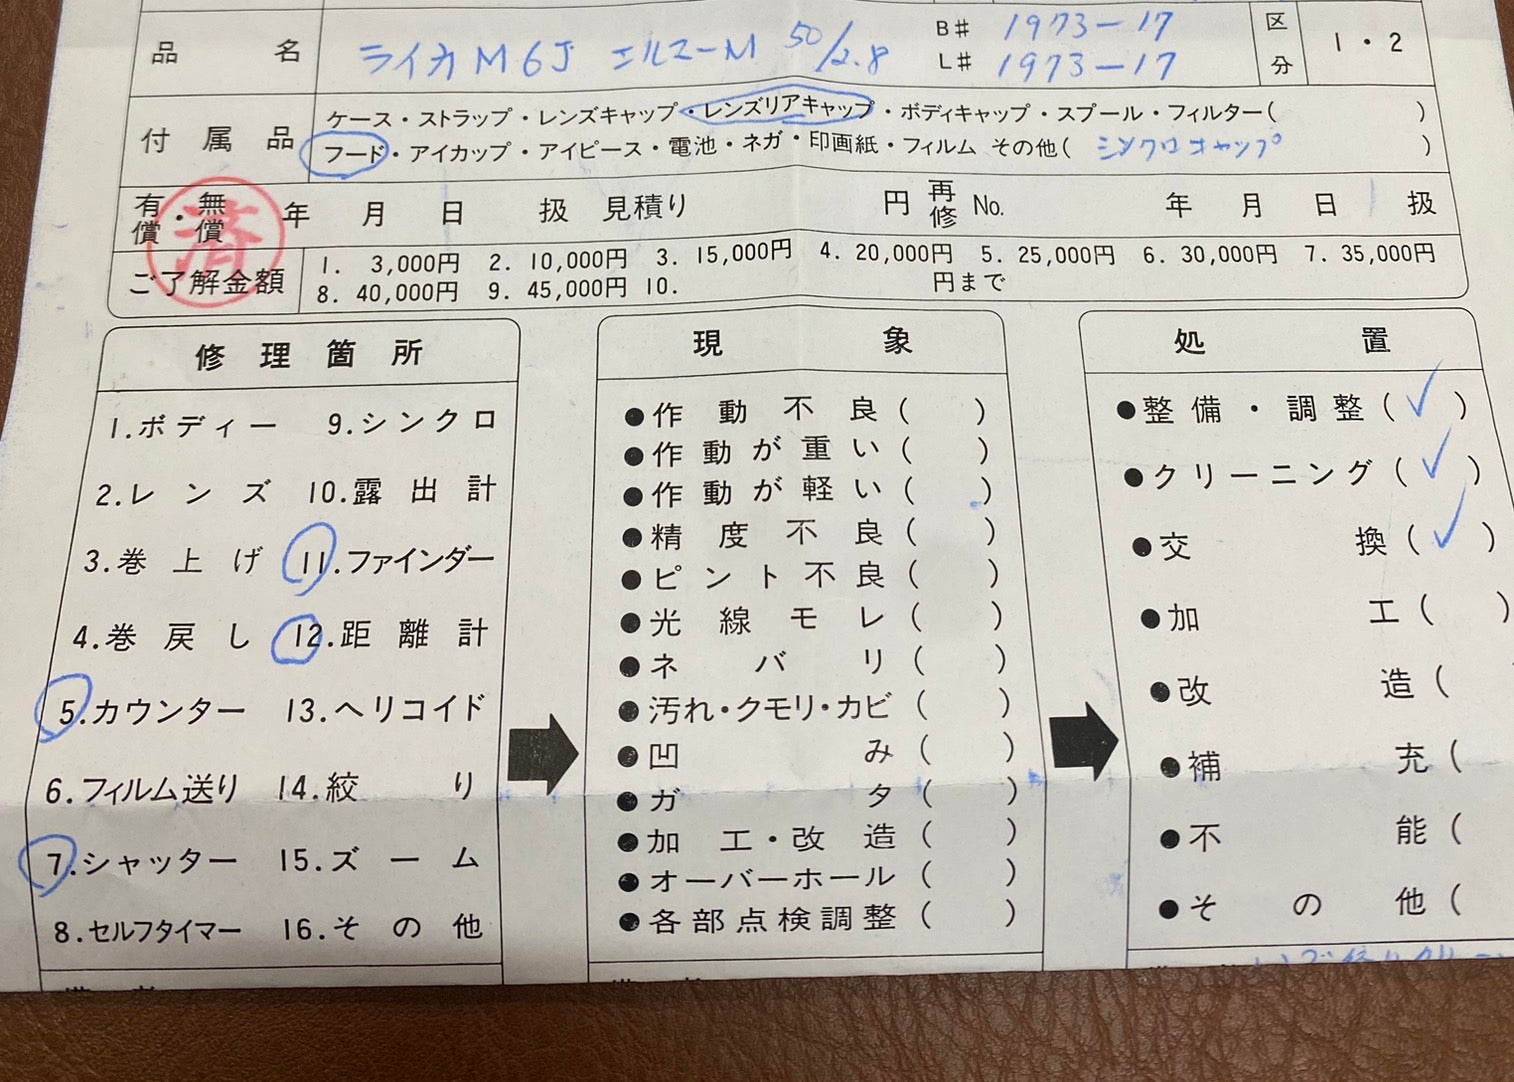 品名 ライカM6J エルマーM 50/2.8 B# 1973-17 区分 1・2
L# 1973-17
付属品 ケース・ストラップ・レンズキャップ・レンズリアキャップ・ボディキャップ・スプール・フィルター( )
フード・アイカップ・アイピース・電池・ネガ・印画紙・フィルム その他( シンクロキャップ )
有償・無償 済 年 月 日 扱 見積り 円 再修 No. 年 月 日 扱
ご了解金額 1. 3,000円 2. 10,000円 3. 15,000円 4. 20,000円 5. 25,000円 6. 30,000円 7. 35,000円
8. 40,000円 9. 45,000円 10. 円まで
修理箇所
1.ボディー 9.シンクロ
2.レンズ 10.露出計
3.巻上げ 11.ファインダー
4.巻戻し 12.距離計
5.カウンター 13.ヘリコイド
6.フィルム送り 14.絞り
7.シャッター 15.ズーム
8.セルフタイマー 16.その他
現象
●作動不良( )
●作動が重い( )
●作動が軽い( )
●精度不良( )
●ピント不良( )
●光線モレ( )
●ネバリ( )
●汚れ・クモリ・カビ( )
●凹み( )
●ガタ( )
●加工・改造( )
●オーバーホール( )
●各部点検調整( )
処置
●整備・調整(✓)
●クリーニング(✓)
●交換(✓)
●加工( )
●改造(
●補充(
●不能(
●その他(